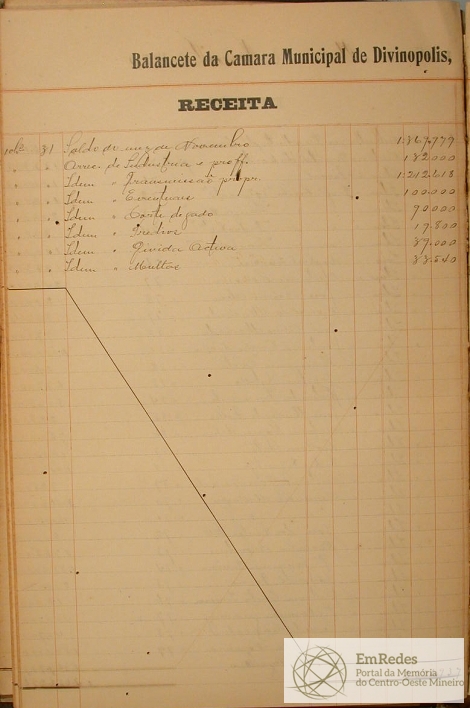 Balancete da Camara Municipal de Divinopolis,
RECEITA
10bº 31 Saldo do mez de Novembro 1:367.779
" " Arrec. de Industria e proff. 132.000
" " Idem " Transmissão propr. 1:212.613
" " Idem " Eventuaes 100.000
" " Idem " Corte de gado 70.000
" " Idem " Predios 17.800
" " Idem " Divida Activa 37.000
" " Idem " Multas 33.540
EmRedes
Portal da Memória
do Centro-Oeste Mineiro